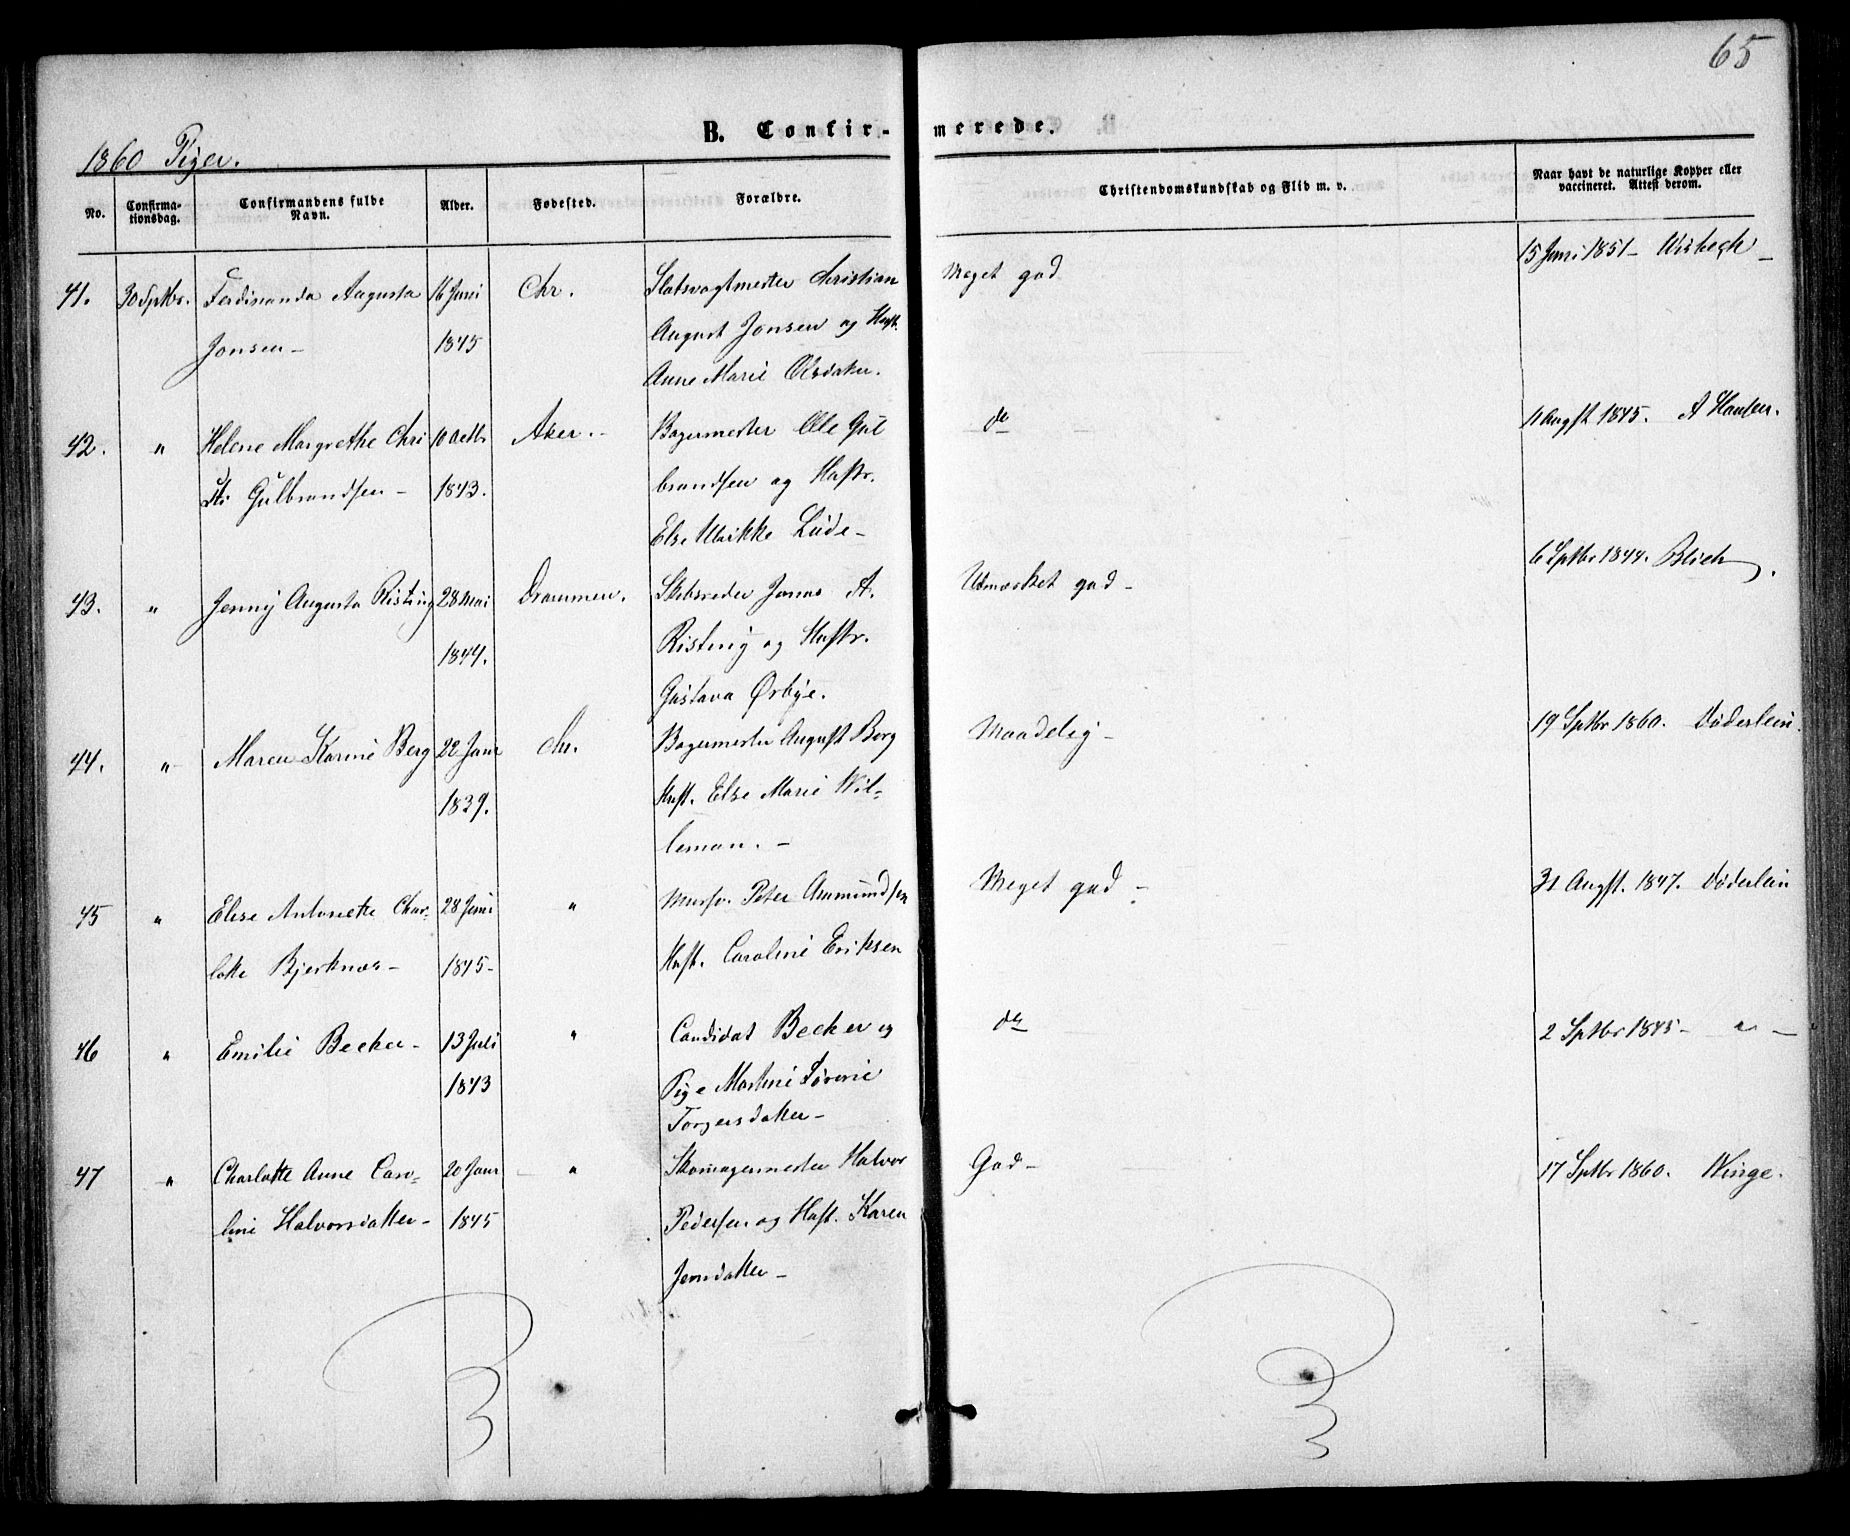 65
B. Confir-merede.
1860 Piger.
No.
Confirma-
tionsdag.
Confirmandens fulde
Navn.
Alder.
Fødested.
Forældre.
Christendomskundskab og Flid m. v.
Naar havt de naturlige Kopper eller
vaccineret. Attest derom.
41. 30 Sptbr. Ferdinanda Augusta 16 Juni Chr. Slotsvagtmester Christian Meget god. 15 Juni 1851 - Wisbech -
Jonsen - 1845 August Jonsen og Hust.
Anne Marie Olsdatter.
42. " Helene Margrethe Chri 10 Octbr Aker. - Bagermester Ole Gul do 11 Augst 1845. A Hansen.
sti Gulbrandsen - 1843. brandsen og Hustr.
Else Ulrikke Lüde -
43. " Jenny Augusta Risting 28 Mai Drammen. Skibsreder Jonas A. Udmærket god - 6 Sptbr 1844. Blich.
1844. Risting og Hustr.
Gustava Ørbye.
44. " Maren Karine Berg 22 Janr Chr. Bagermester August Berg Maadelig - 19 Sptbr 1860. Døderlein.
1839. Hust. Else Marie Wil-
leman. -
45 " Elise Antonette Char- 28 Juni " Mursv. Peter Ammundsen Meget god - 31 Augst. 1847. Døderlein
lotte Bjerknæs - 1845 - Hust. Caroline Eriksen
46 " Emilie Becker - 13 Juli " Candidat Becker og do 2 Sptbr 1845 - " -
1843 Pige Martine Sørine
Torgersdatter -
47 " Charlotte Anne Caro- 20 Janr " Skomagermester Halvor God - 17 Sptbr 1860. Winge.
line Halvorsdatter - 1845 Pedersen og Hust. Karen
Jensdatter -